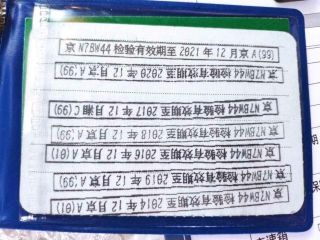 京N7BW44检验有效期至2021年12月京A(99)
京N7BW44检验有效期至2020年12月京A(99)
京N7BW44检验有效期至2017年12月湘C(99)
京N7BW44检验有效期至2018年12月京A(99)
京N7BW44检验有效期至2016年12月京A(01)
京N7BW44检验有效期至2019年12月京A(99)
京N7BW44检验有效期至2014年12月京A(01)